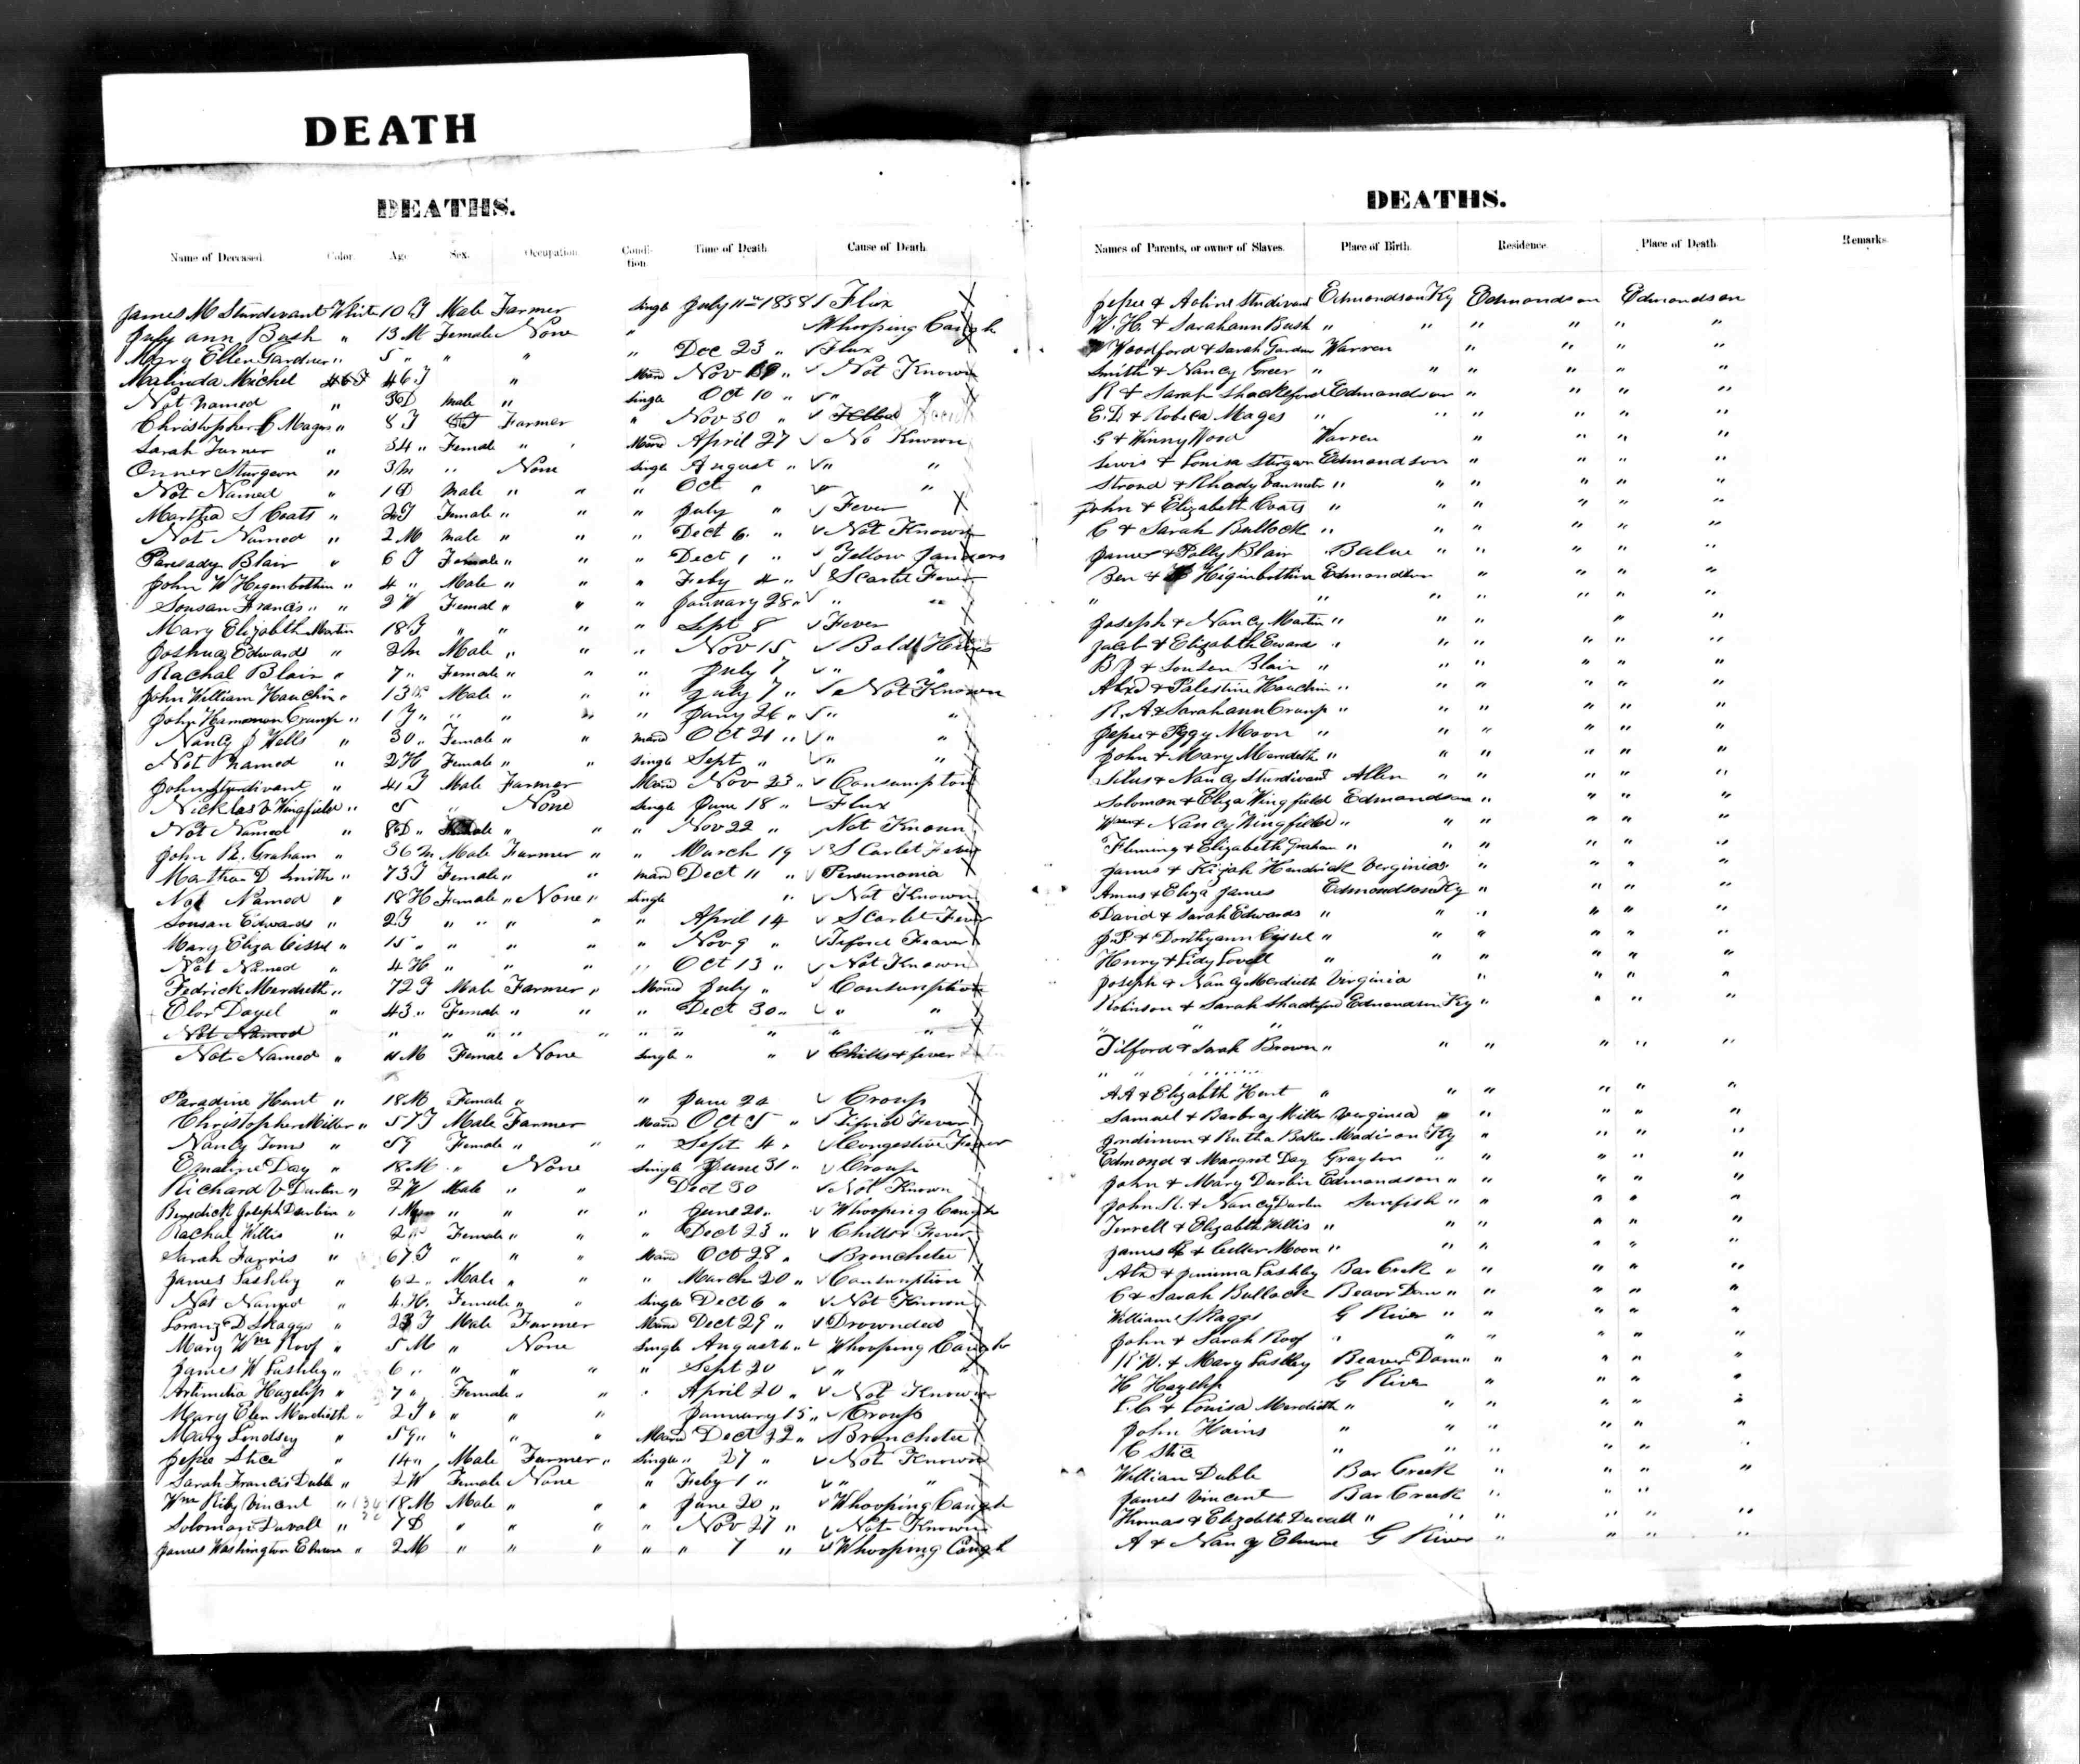 DEATH
DEATHS.
Name of Deceased. Color. Age Sex. Occupation Condi-tion. Time of Death. Cause of Death.
James M Sturdevant White 10 Y Male Farmer Single July 11th 1858 Flux
July ann Bush " 13 M Female None " Whooping Caugh
Mary Ellen Gardner " 5 " " " " Dec 23 " Flux
Malinda Michel 46 Y " Mard Nov " Not Known
Not named " Male " Single Oct 10 " " "
Christopher C Mages " 8 Y Farmer " Nov 30 "
Sarah Turner " 34 " Female " Mard April 27 No Known
Onner Sturgeon " 3 m " None Single August " " "
Not Named " 1 D Male " " " Oct " " "
Martha S Coats " 2 Y Female " " " July " Fever
Not Named " 2 M Male " " " Dect 6 " Not Known
Paresady Blair " 6 Y Female " " " Dect 1 " Yellow Janders
John W Higenbothim " 4 " Male " " " Feby 4 " Scarlet Fever
Sousan Francis " " 2 W Femal " " " January 28 " " "
Mary Elizabeth Martin 18 Y " " " " Sept 8 Fever
Joshua Edwards " 2 m Male " " " Nov 15 Bold Hives
Rachal Blair " 7 " Female " " " July 7 " " "
John William Houchin " 13 Male " " " July 7 " Not Known
John Hammon Crump " 1 Y " " " " " Jany 26 " " "
Nancy J Wells " 30 " Female " " Mard Oct 21 " " "
Not named " 2 H Female " " Single Sept " " "
John Sturdivant " 41 Y Male Farmer Mard Nov 23 " Consumpton
Nicklas B Wingfield " 5 " None Single June 18 " Flux
Not Named " 8 D " " " " Nov 22 " Not Known
John R. Graham " 36 m Male Farmer " " March 19 Scarlet Fever
Martha D Smith " 73 Y Female " " Mard Dect 11 " Pneumonia
Not Named " 18 H Female " None " Single " Not Known
Sousan Edwards " 2 Y " " " " " April 14 Scarlet Fever
Mary Eliza Cissel " 15 " " " " " Nov 9 " Tiford Feaver
Not Named " 4 H " " " " Oct 13 " Not Known
Fedrick Merdieth " 72 Y Male Farmer " Mared July " Consumption
Elor Dayel " 43 " Female " " " Dect 30 " " "
Not Named " " " " " " " " " " "
Not Named " 11 M Femal None Single " " Chills & fever
Paradine Hunt " 18 M Female " " June 22 Croup
Christopher Miller " 57 Y Male Farmer Mard Oct 5 " Tifoid Fever
Nancy Toms " 59 Female " " " Sept 4 " Congestive Fever
Emaline Day " 18 M " None Single June 31 " Croup
Richard V Durbin " 2 W Male " " Dect 30 Not Known
Benedick Joseph Durbin " 1 " " " " June 20 " Whooping Caugh
Rachal Willis " 2 Female " " " Dect 23 " Chills & Fever
Sarah Farris " 67 Y " " " Mard Oct 28 " Bronchetee
James Lashley " 62 " Male " " " March 20 " Consumption
Not Named " 4 H. Female " " Single Dect 6 " Not Known
Loranz D Skaggs " 23 Y Male Farmer Mard Dect 29 " Drownded
Mary Wm Roof " 5 M " None Single August " Whooping Caugh
James W Lashley " 6 " " " " " Sept 20 " "
Artimitia Hazelip " 7 " Female " " " April 20 " Not Known
Mary Elen Merdieth " 2 Y " " " " January 15 " Croup
Mary Lindsey " 59 " " " " Mard Dect 22 " Bronchetee
Jesse Stice " 14 " Male Farmer " Single " 27 " Not Known
Sarah Francis Dubble " 2 W Female None " Feby 1 " " "
Wm Riley Vincent " 18 M Male " " " June 20 " Whooping Caugh
Solomon Duvall " 7 D " " " " Nov 27 " Not Known
James Washington Elmore " 2 M " " " " " 7 " Whooping Cough
DEATHS.
Names of Parents, or owner of Slaves. Place of Birth. Residence. Place of Death. Remarks.
Jesse & Aoline Sturdivant Edmondson Ky Edmondson Edmondson
W. H. & Sarahann Bush " " " " " "
Woodford & Sarah Gardner Warren " " " "
Smith & Nancy Greer " " " " " "
R & Sarah Shackleford Edmondson " " " "
E. D & Robeca Mages " " " " " "
G & Winny Wood Warren " " " "
Lewis & Louisa Sturgeon Edmondson " " " "
Stroud & Rhady Vanmeter " " " " " "
John & Elizabeth Coats " " " " " "
C & Sarah Bullock " " " " " "
James & Polly Blair " " " " "
Ben & Higinbothim Edmondson " " " "
" " " " " " "
Joseph & Nancy Martin " " " " "
Jacob & Elizabeth Edwards " " " " " "
B J & Sousen Blair " " " " " "
Alxd & Palestine Houchin " " " " " "
R. A. & Sarahann Crump " " " " " "
Jesse & Peggy Moon " " " " " "
John & Mary Merideth " " " " " "
Silus & Nancy Sturdivant Allen " " " " "
Solomon & Eliza Wingfield Edmondson " " " "
Wm & Nancy Wingfield " " " " " "
Fleming & Elizabeth Graham " " " " " "
James & Kizah Hendrick Verginia " " " "
Amus & Eliza James Edmondson Ky " " " "
David & Sarah Edwards " " " " " "
J. P. & Dorthyann Cissel " " " " " "
Henry & Lidy Lovell " " " " " "
Joseph & Nancy Merdieth Virginia " " " "
Robinson & Sarah Shackleford Edmondson Ky " " " "
" " "
Tilford & Sarah Brown " " " " " "
" "
AA & Elizabeth Hunt " " " " " "
Samuel & Barbray Miller Verginia " " " " "
& Rutha Baker Madison Ky " " " "
Edmond & Margret Day Grayson " " " " "
John & Mary Durbin Edmondson " " " " "
John R. & Nancy Durbin Sunfish " " " " "
Terrell & Elizabeth Willis " " " " " "
James & Moon " " " " " "
Alxd & Jemima Lashley Bar Creek " " " " "
C & Sarah Bullock Beaver Dam " " " " "
William Skaggs G River " " " " "
John & Sarah Roof " " " " " "
R W. & Mary Lashley Beaver Dam " " " " "
H Hazelip G River " " " "
L. C & Louisa Merdieth " " " " " "
John Hains " " " " " "
C Stice " " " " " "
William Dubble Bar Creek " " " "
James Vincent Bar Creek " " " "
Thomas & Elizebeth Duvall " " " " " "
A & Nancy Elmore G River " " " "